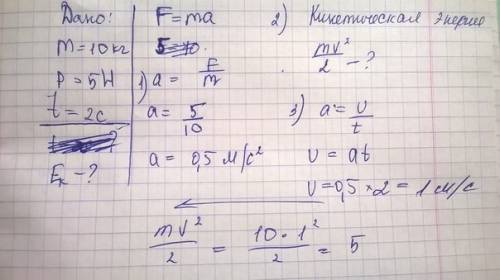 Дано:
m = 10 кг
P = 5H
t = 2c
Eк - ?
F = ma
1) a = F/m
a = 5/10
a = 0,5 м/с²
2) Кинетическая Энергия
mv²/2 - ?
3) a = υ/t
υ = at
υ = 0,5 × 2 = 1 м/с
mv²/2 = 10 · 1²/2 = 5